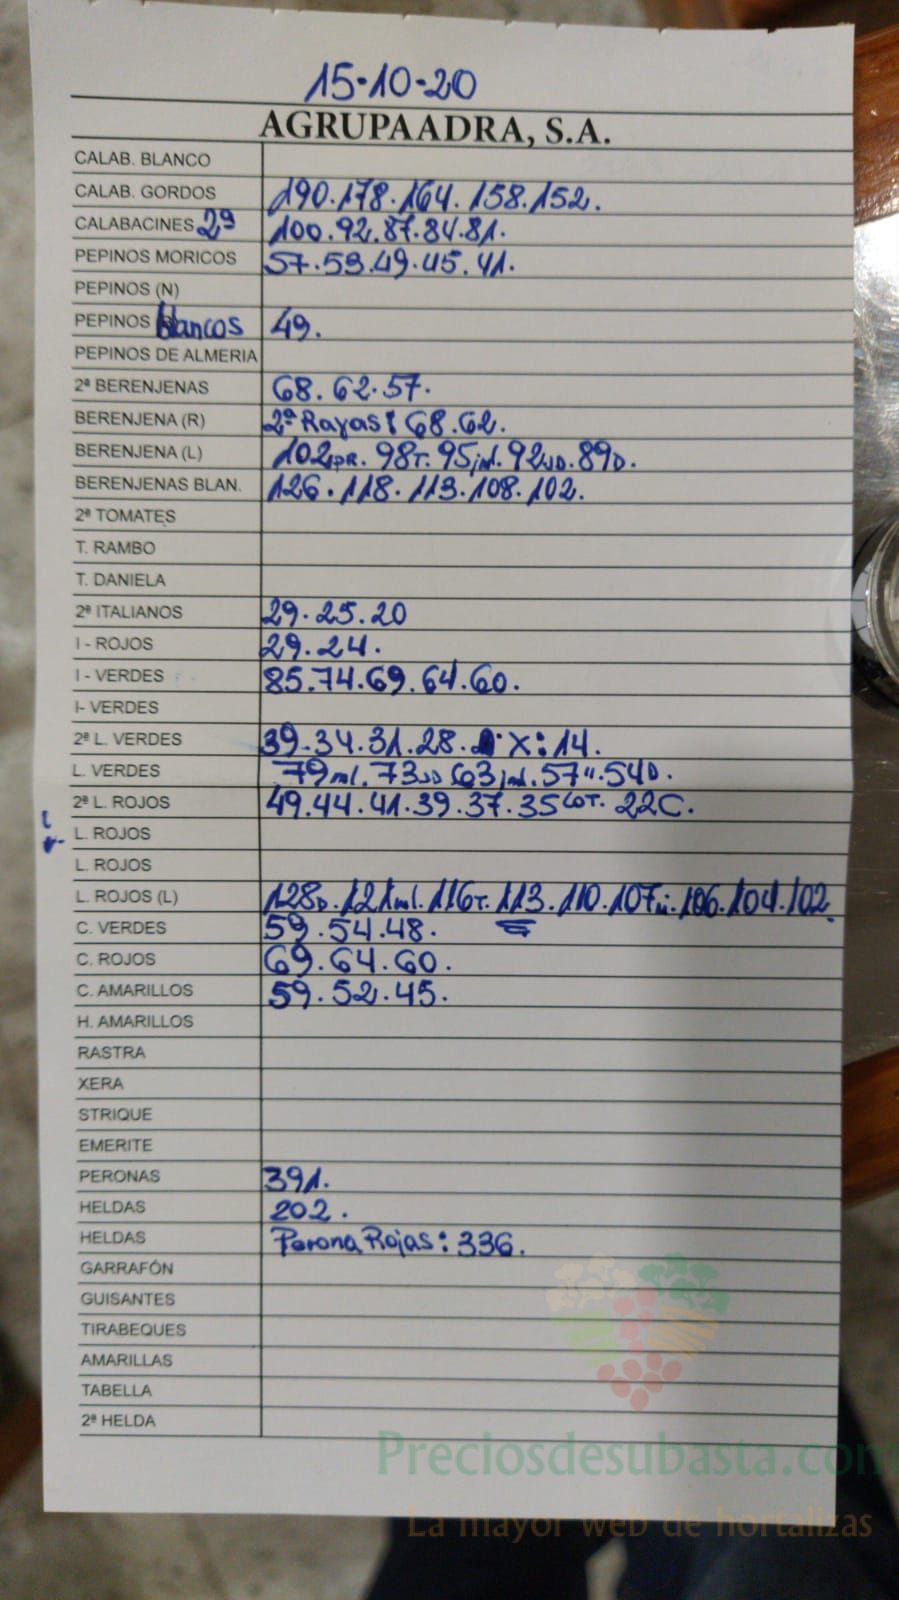 15-10-20
AGRUPAADRA, S.A.
CALAB. BLANCO
CALAB. GORDOS 190.178.164.158.152.
CALABACINES 2ª 100.92.87.84.81.
PEPINOS MORICOS 57.53.49.45.41.
PEPINOS (N)
PEPINOS blancos 49.
PEPINOS DE ALMERIA
2ª BERENJENAS 68.62.57.
BERENJENA (R) 2ª Rayas: 68.62.
BERENJENA (L) 102 98T. 95 92 89D.
BERENJENAS BLAN. 126.118.113.108.102.
2ª TOMATES
T. RAMBO
T. DANIELA
2ª ITALIANOS 29.25.20
I - ROJOS 29.24.
I - VERDES 85.74.69.64.60.
I- VERDES
2ª L. VERDES 39.34.31.28. X: 14.
L. VERDES 79ml. 73 63 57". 54D.
2ª L. ROJOS 49.44.41.39.37.35 LOT. 22C.
L. ROJOS
L. ROJOS
L. ROJOS (L) 128D. 121ml. 116T. 113. 110. 107 106. 104. 102.
C. VERDES 59.54.48.
C. ROJOS 69.64.60.
C. AMARILLOS 59.52.45.
H. AMARILLOS
RASTRA
XERA
STRIQUE
EMERITE
PERONAS 391.
HELDAS 202.
HELDAS Perona Rojas: 336.
GARRAFÓN
GUISANTES
TIRABEQUES
AMARILLAS
TABELLA
2ª HELDA
Preciosdesubasta.com
La mayor web de hortalizas